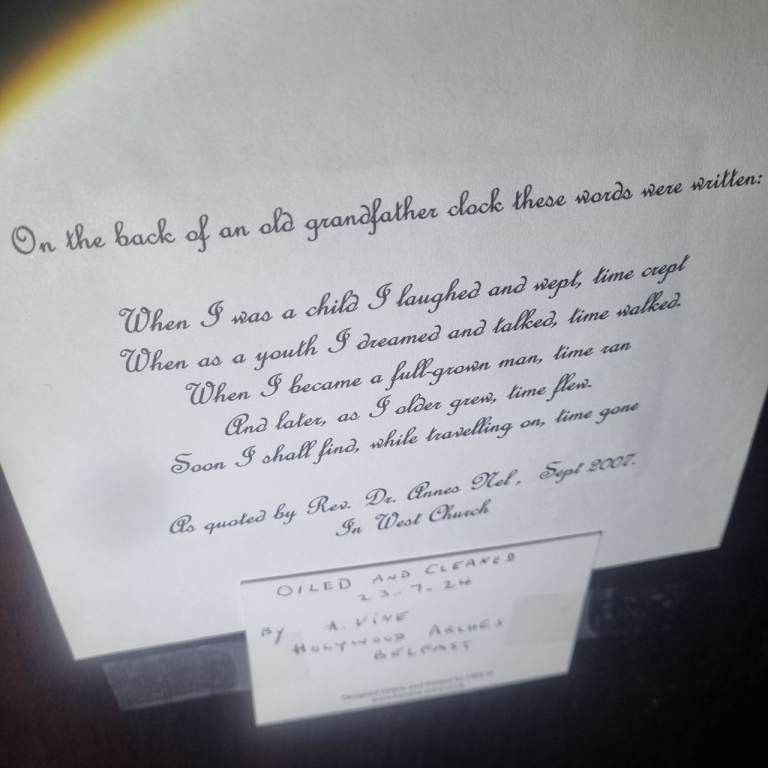 On the back of an old grandfather clock these words were written:
When I was a child I laughed and wept, time crept
When as a youth I dreamed and talked, time walked.
When I became a full-grown man, time ran
And later, as I older grew, time flew.
Soon I shall find, while travelling on, time gone
As quoted by Rev. Dr. Annes Nel, Sept 2007.
In West Church
OILED AND CLEANED
23-7-24
BY A. VINE
HOLYWOOD ARCHES
BELFAST